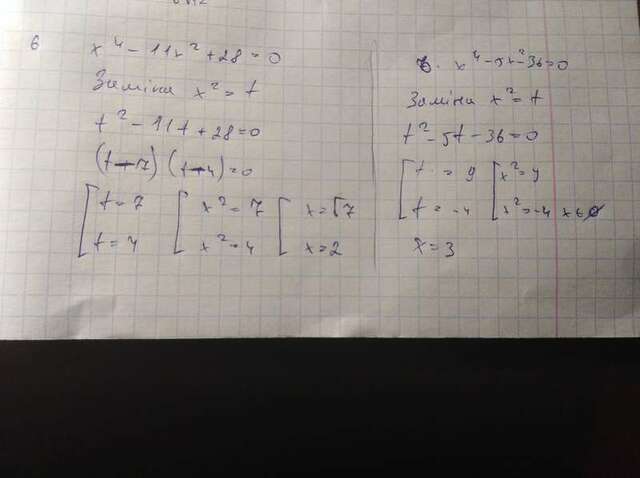 6
x⁴ - 11x² + 28 = 0
Заміна x² = t
t² - 11t + 28 = 0
(t-7) (t-4) = 0
[ t = 7 [ x² = 7 [ x = √7
t = 4 x² = 4 x = 2
x⁴ - 5x² - 36 = 0
Заміна x² = t
t² - 5t - 36 = 0
[ t = 9 [ x² = 9
t = -4 x² = -4 x ∈ ∅
x = 3